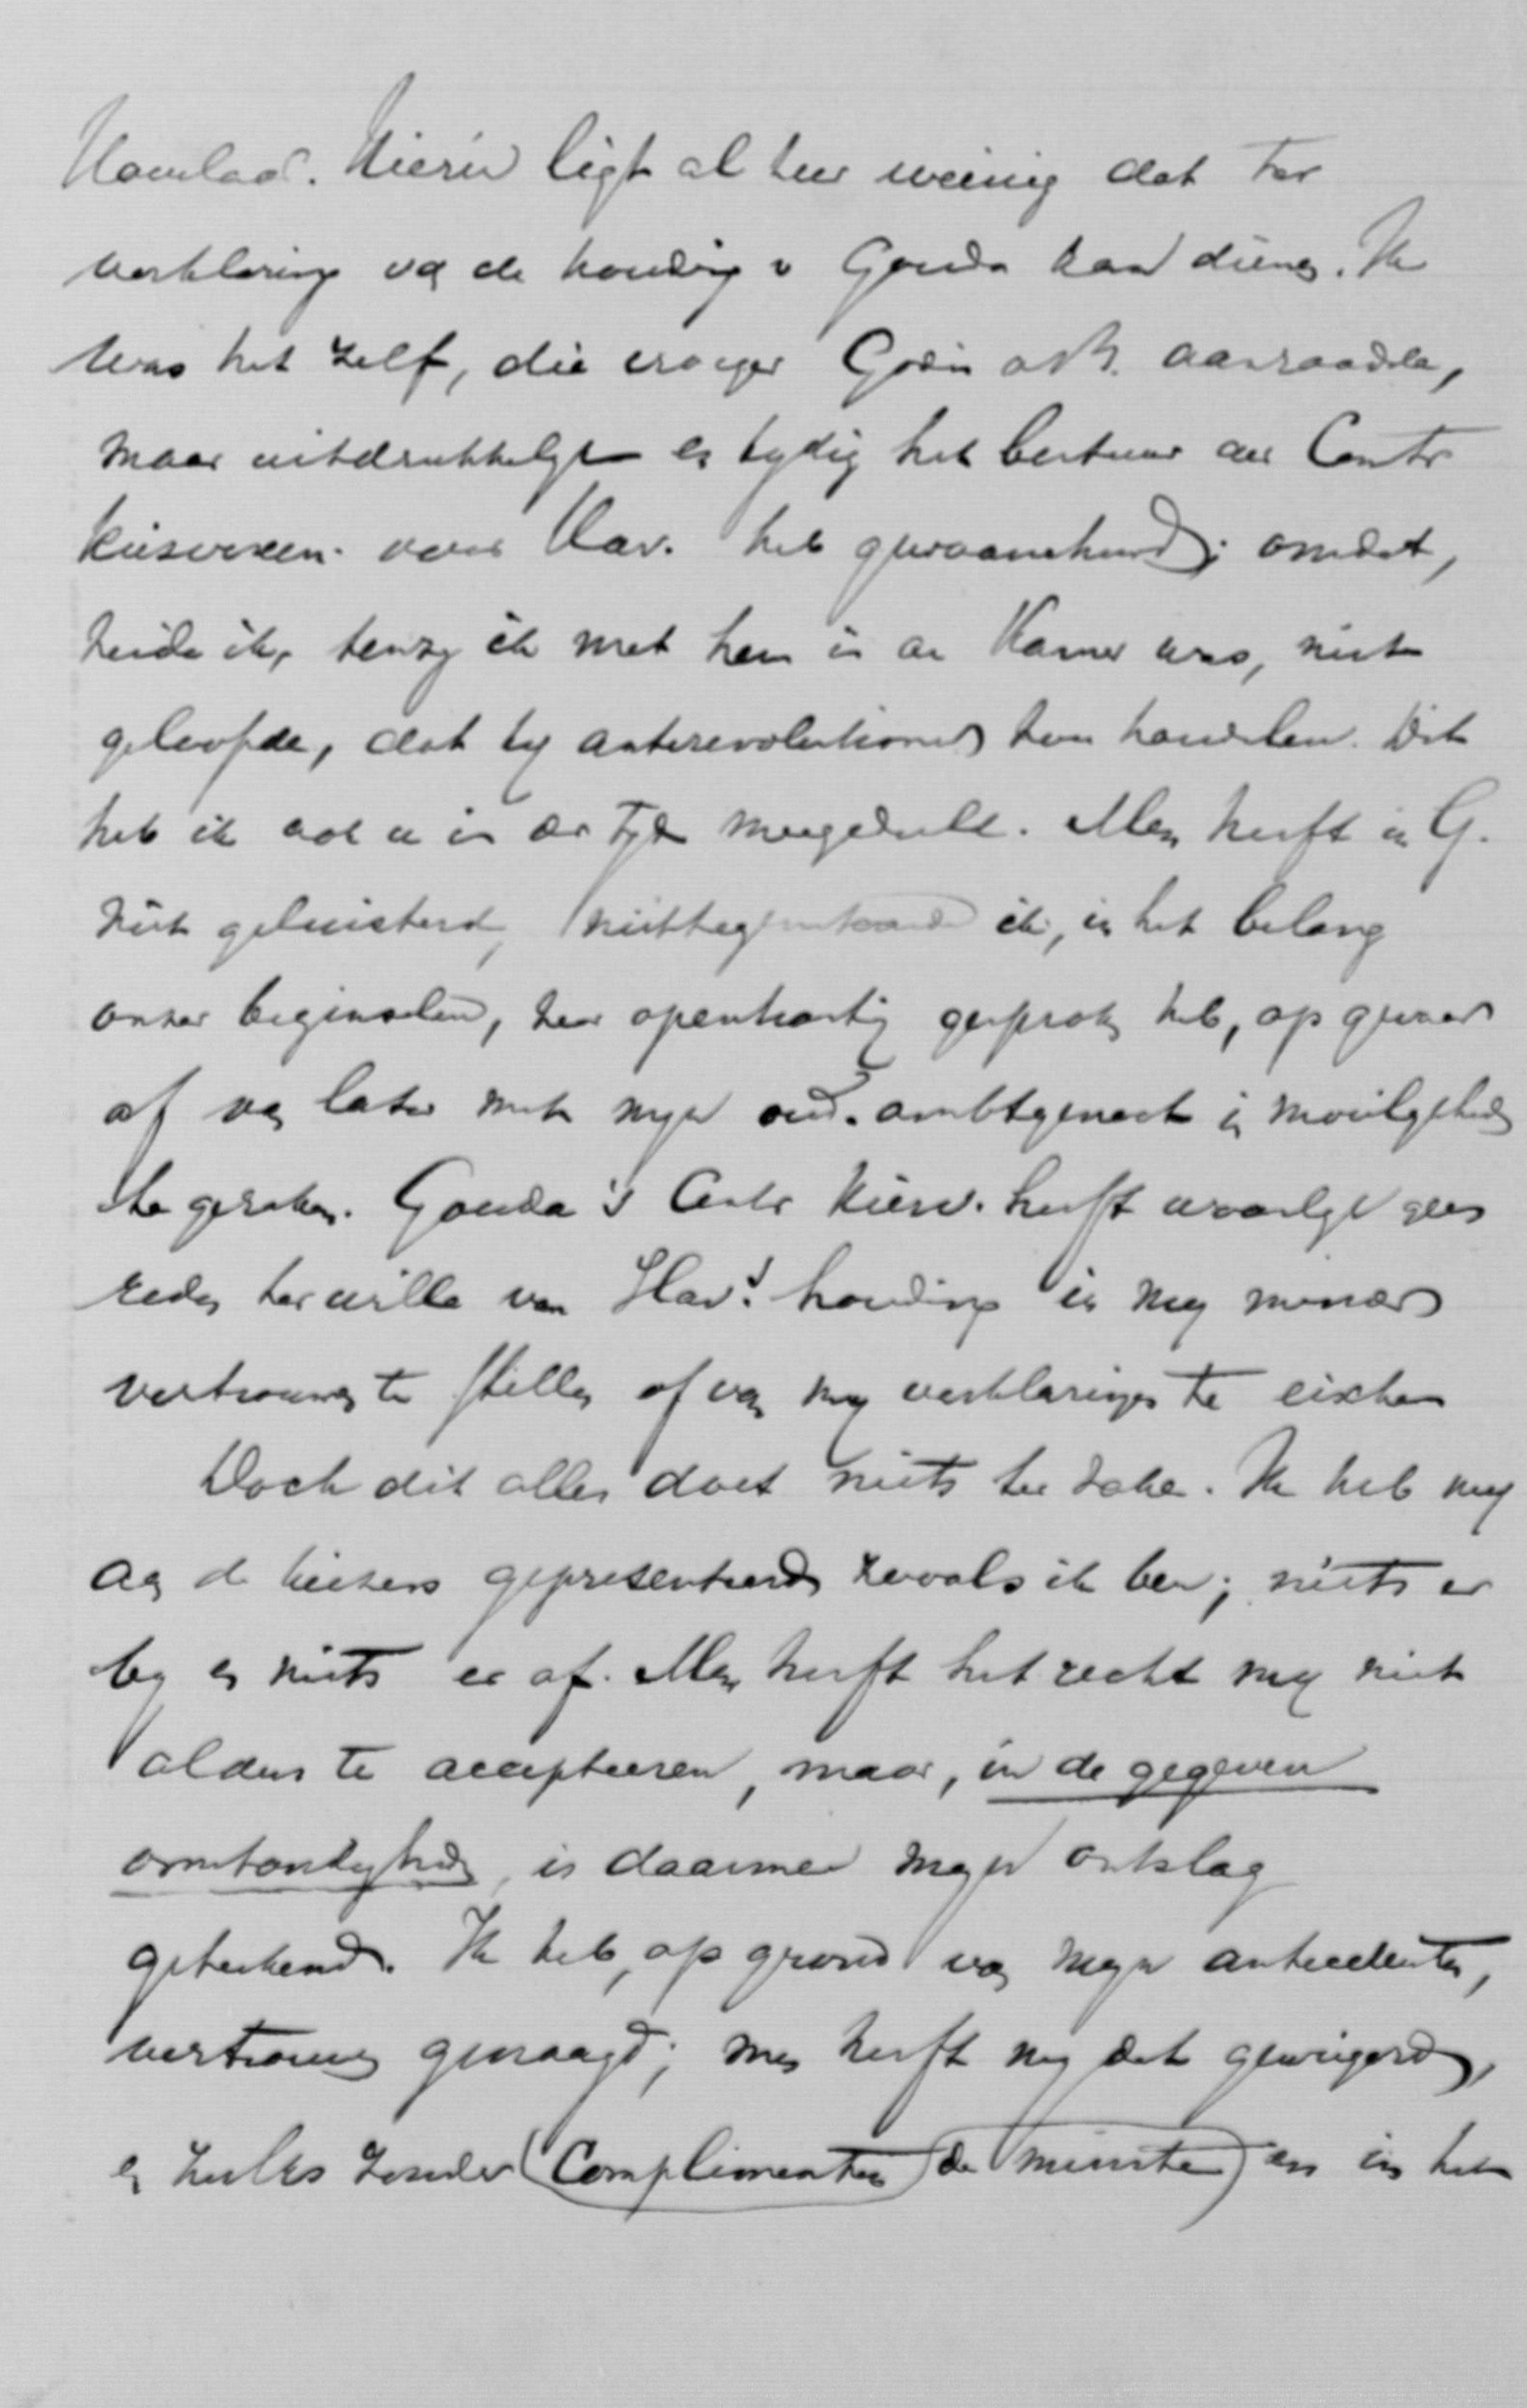 Havelaar. Hierin ligt al zeer weinig dat ter
verklaring van de houding v Gouda kan dienen. Ik
was het zelf, die vroeger aanraadde,
maar uitdrukkelijk en tydig het bestuur der Centr
kiesvereen. voor Hav. heb gewaarschuwd; omdat,
zeide ik, tenzy ik met hem in de Kamer was, niet
geloofde, dat hy antirevolutionair zou handelen. Dit
heb ik ook u in der tyd meegedeeld. Men heeft in G.
niet geluisterd, niettegenstaande ik, in het belang
onzer beginselen, zeer openhartig gesproken heb, op gevaar
af van later met myn oud-ambtgenoot in moeilykheden
te geraken. Gouda's Centr Kiesv. heeft waarlyk geen
reden ter wille van Hav.s houding in my minder
vertrouwen te stellen of van my verklaringen te eischen
Doch dit alles doet niets ter zake. Ik heb my
aan de kiezers gepresenteerd zooals ik ben; niets er
by en niets er af. Men heeft het recht my niet
aldus te accepteeren, maar, in de gegeven
omstandigheden, is daarmee myn ontslag
geteekend. Ik heb, op grond van myn antecedenten,
vertrouwen gevraagd; men heeft my dat geweigerd,
en zulks zonder (Complimenten de minste) en in het